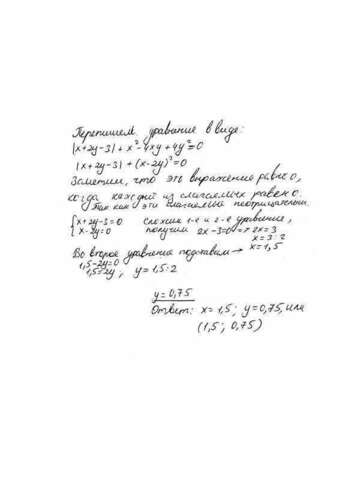 Перепишем уравнение в виде:
|x+2y-3| + x² - 4xy + 4y² = 0
|x+2y-3| + (x-2y)² = 0
Заметим, что это выражение равно 0,
когда каждое из слагаемых равно 0.
Так как эти слагаемые неотрицательны.
{x+2y-3=0 сложим 1-е и 2-е уравнение,
{x-2y=0 получим 2x-3=0 => 2x=3
x=3:2
Во второе уравнение подставим → x=1,5
1,5-2y=0
1,5=2y; y=1,5:2
y=0,75
Ответ: x=1,5; y=0,75, или
(1,5; 0,75)